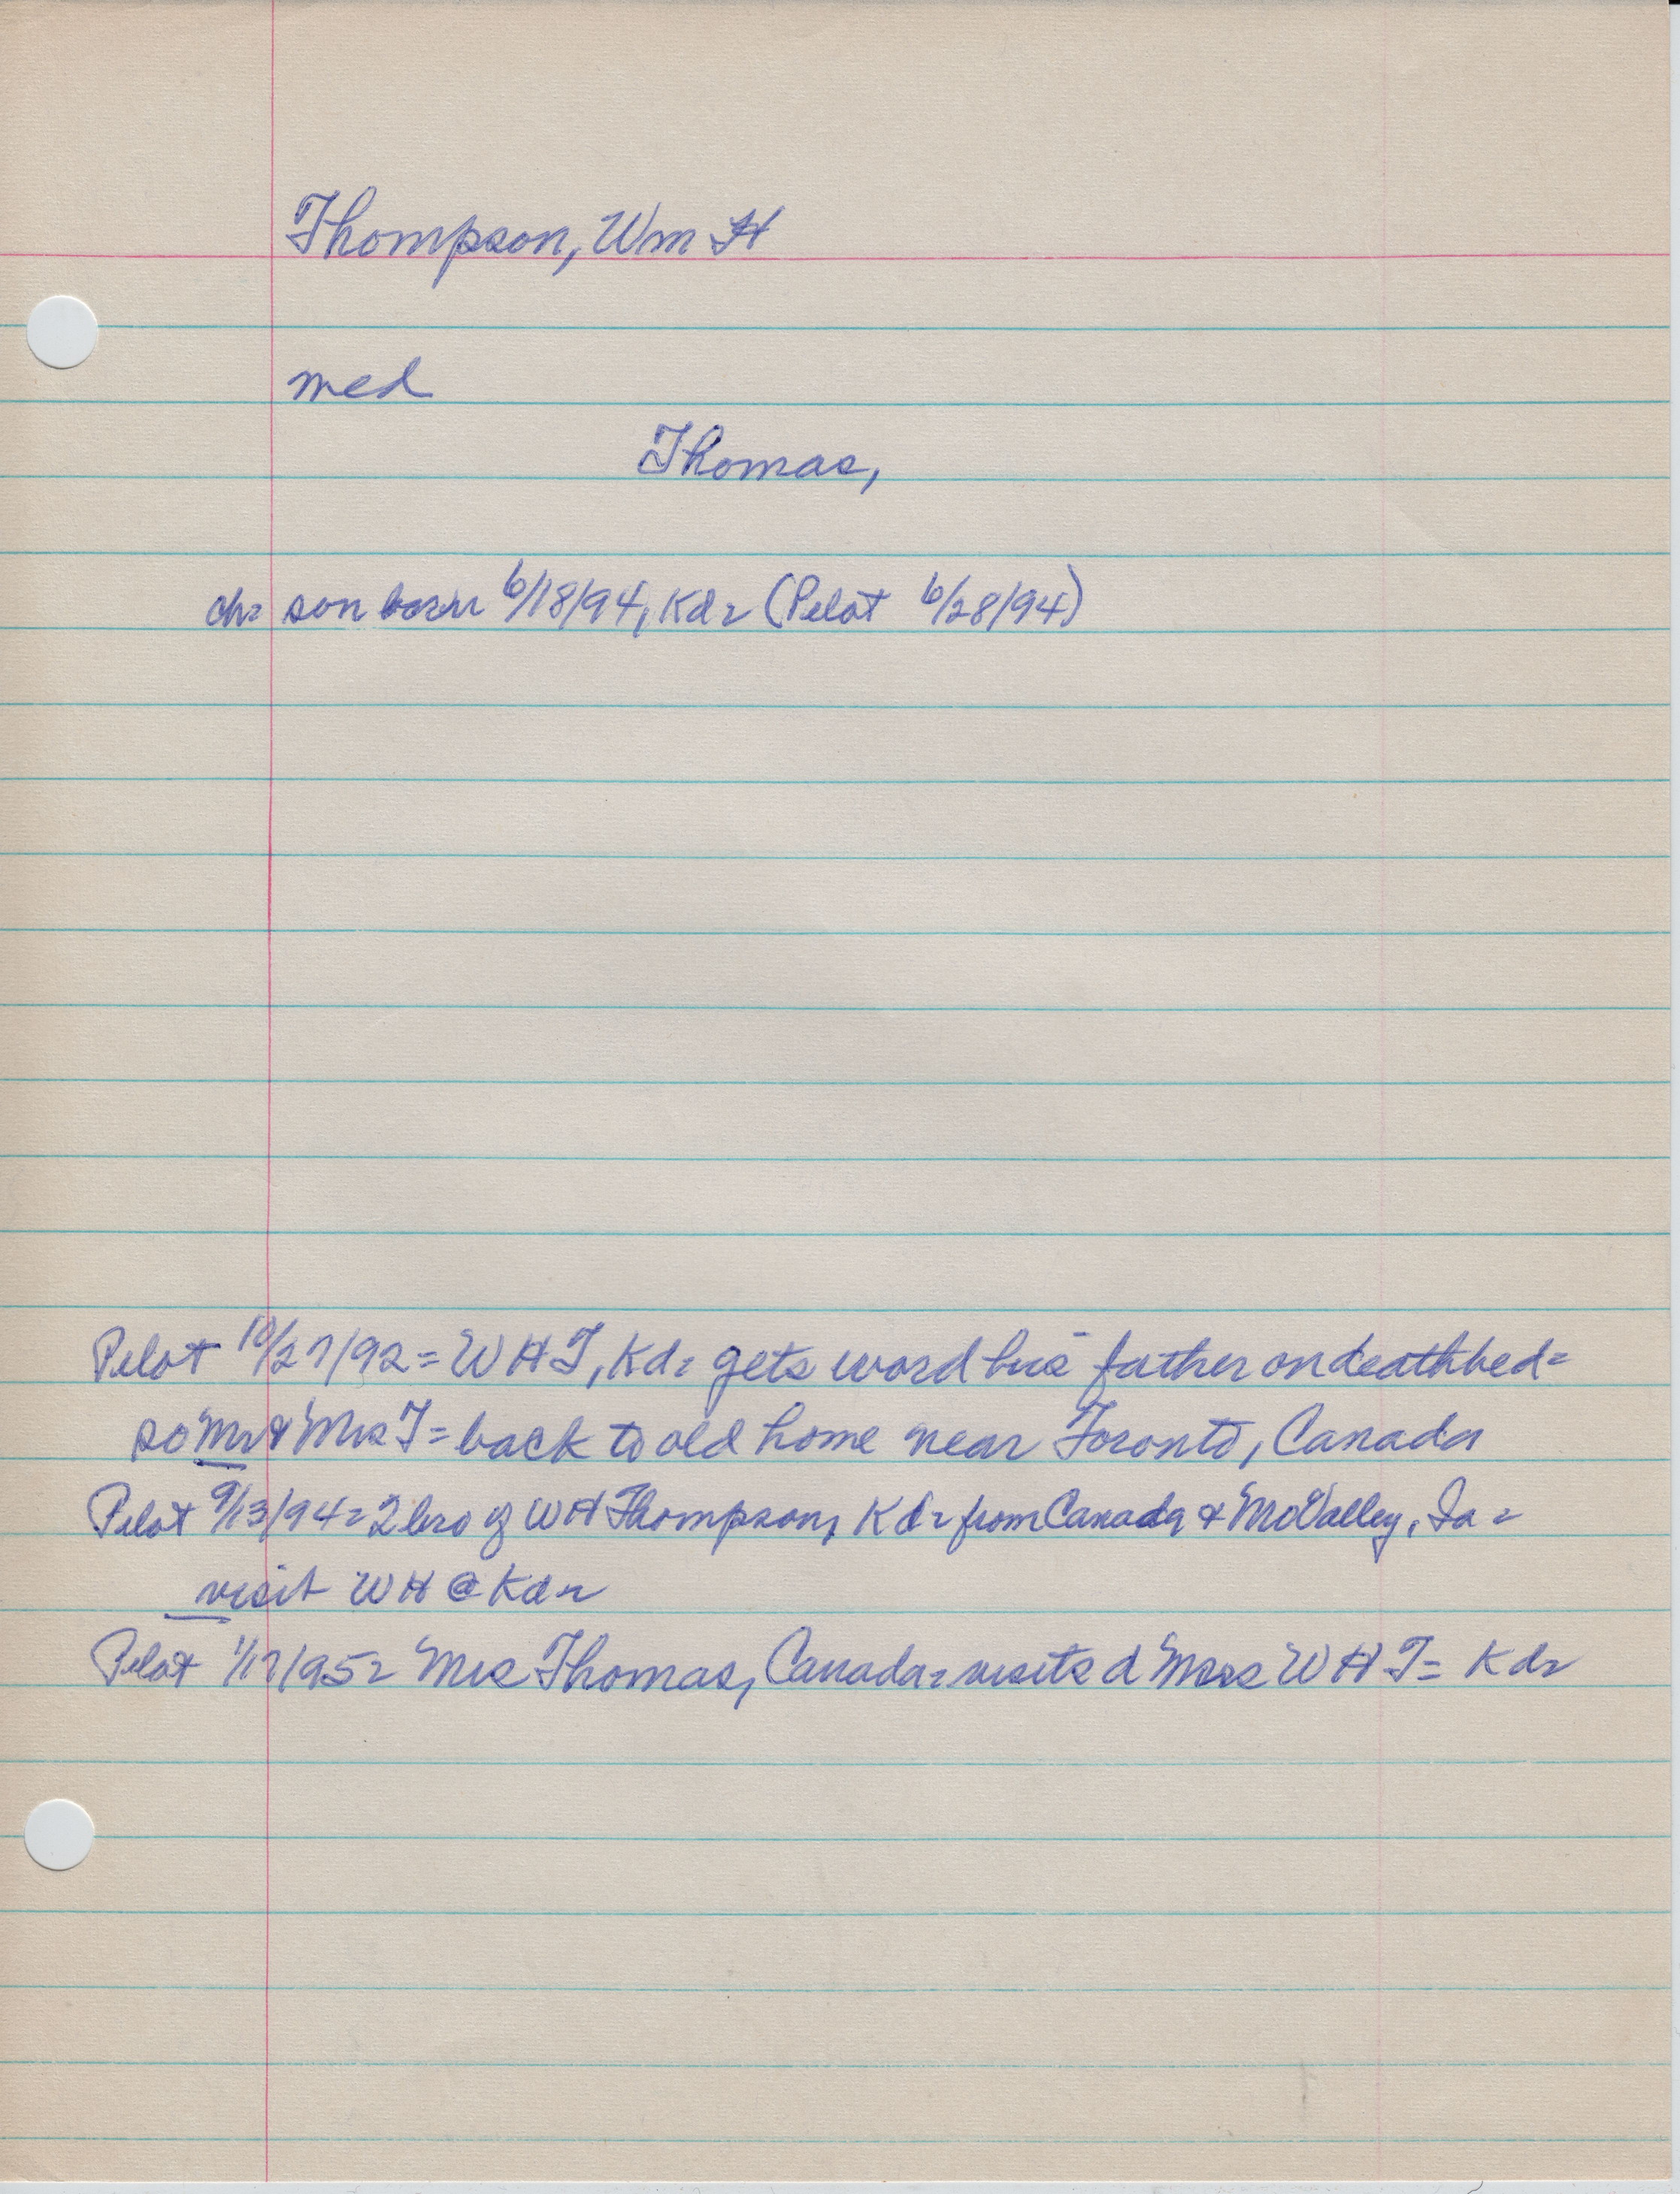 Thompson, Wm H
med
Thomas,
ch= son born 6/18/94, Kdr (Pelot 6/28/94)
Pelot 10/27/92 = W H T, Kdr gets word his father on deathbed=
so Mr & Mrs T = back to old home near Toronto, Canada
Pelot 9/13/94 = 2 bro of WH Thompson, Kdr from Canada & Mo Valley, Ia =
visit WH @ Kdr
Pelot 1/17/95 = Mrs Thomas, Canada = visits d Mrs W H T = Kdr